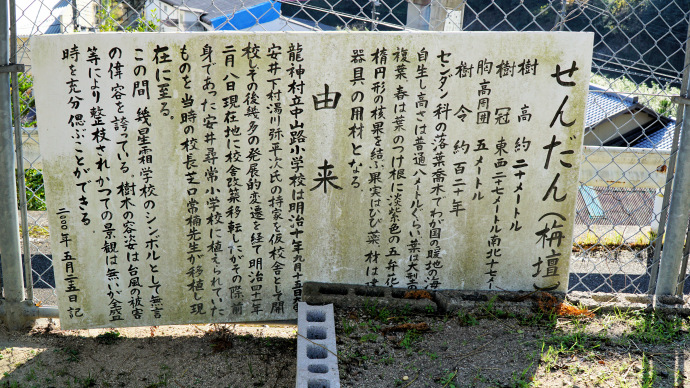 せんだん（栴壇）
樹高 約二十メートル
樹冠 東西二十七メートル南北十七メー
胸高周囲 五メートル
樹令 約百二十年
センダン科の落葉喬木でわが国の暖地の海
自生し高さは普通八メートルぐらい葉は大型の羽
複葉、春は葉のつけ根に淡紫色の五弁花
楕円形の核果を結ぶ果実はひび薬、材は建
器具の用材となる。
由来
龍神村立中山路小学校は明治十年九月十五日
安井下村湯川弥平次氏の持家を仮校舎として開
校、その後幾多の発展的変遷を経て明治四十一年
二月八日現在地に校舎改築移転したがその際前
身であった安井尋常小学校に植えられていた
ものを当時の校長芝口常楠先生が移植し現
在に至る。
この間 幾星霜学校のシンボルとして無言
の偉容を誇っている。樹木の容姿は台風の被害
等により整枝されかつての景観は無いが全盛
時を充分偲ぶことができる。
二〇〇〇年 五月二五日記